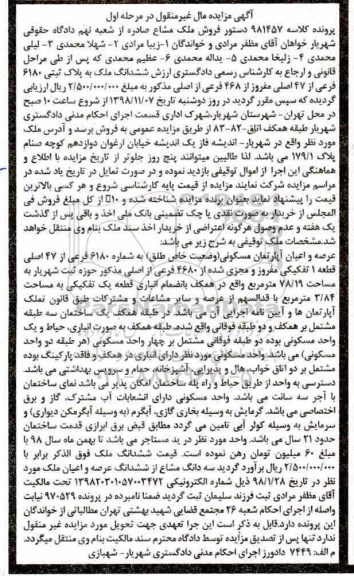 آگهی مزایده مال غیرمنقول در مرحله اول
پرونده کلاسه ۹۸۱۴۵۷ دستور فروش ملک مشاع صادره از شعبه نهم دادگاه حقوقی
شهریار خواهان آقای مظفر مرادی و خواندگان ۱-زیبا مرادی ۲- شهلا محمدی ۳- لیلی
محمدی ۴- زلیخا محمدی ۵- یداله محمدی ۶- عظیم محمدی که پس از طی مراحل
قانونی و ارجاع به کارشناس رسمی دادگستری ارزش ششدانگ ملک به پلاک ثبتی ۶۱۸۰
فرعی از ۴۷ اصلی مفروز از ۴۶۸ فرعی از اصلی مذکور به مبلغ ۲/۵۰۰/۰۰۰/۰۰۰ ریال ارزیابی
گردیده که سپس مقرر گردید در روز دوشنبه تاریخ ۱۳۹۸/۱۱/۰۷ از شروع ساعت ۱۰ صبح
در محل تهران - شهرستان شهریار،شهرک اداری قسمت اجرای احکام مدنی دادگستری
شهریار طبقه همکف اتاق-۸۲-۸۳ از طریق مزایده عمومی به فروش برسد و آدرس ملک
مورد نظر واقع در شهریار- اندیشه فاز یک اندیشه خیابان ارغوان دوازدهم کوچه صنام
پلاک ۱۷۹/۱ می باشد. لذا طالبین میتوانند پنج روز جلوتر از تاریخ مزایده با اطلاع و
هماهنگی این اجرا از اموال توقیفی بازدید نموده و در صورت تمایل در تاریخ یاد شده در
مراسم مزایده شرکت نمایند مزایده از قیمت پایه کارشناسی شروع و هر کسی بالاترین
قیمت را پیشنهاد نماید بعنوان برنده مزایده شناخته شده و ۱۰٪ از کل مبلغ فروش فی
المجلس از خریدار به صورت نقدی یا چک تضمینی بانک ملی اخذ و باقی پس از گذشت
یک هفته و عدم وصول هرگونه اعتراضی از خریدار اخذ سند ملک بنام وی منتقل خواهد
شد.مشخصات ملک توقیفی به شرح زیر می باشد:
عرصه و اعیان آپارتمان مسکونی(وضعیت خاص طلق) به شماره ۶۱۸۰ فرعی از ۴۷ اصلی
قطعه ۱ تفکیکی مفروز و مجزی شده از ۴۶۸۰ فرعی از اصلی مذکور حوزه ثبت شهریار به
مساحت ۷۸/۱۹ مترمربع واقع در همکف بانضمام انباری قطعه یک تفکیکی به مساحت
۳/۸۴ مترمربع با قدالسهم از عرصه و سایر مشاعات و مشترکات طبق قانون تملک
آپارتمان ها و آیین نامه اجرایی آن می باشد. در طبقه همکف یک ساختمان سه طبقه
مشتمل بر همکف و دو طبقه فوقانی واقع شده. طبقه همکف به صورت انباری، حیاط و یک
واحد مسکونی بوده دو طبقه فوقانی مشتمل بر چهار واحد مسکونی (هر طبقه دو واحد
مسکونی) می باشد. واحد مسکونی مورد نظر دارای انباری در همکف و فاقد پارکینگ بوده
مشتمل بر دو اتاق خواب، هال و پذیرایی، آشپزخانه، حمام و سرویس بهداشتی می باشد.
دسترسی به واحد از طریق حیاط و راه پله ساختمان امکان پذیر می باشد نمای ساختمان
با آجر سه سانت می باشد. واحد مسکونی دارای انشعابات آب مشترک، گاز و برق
اختصاصی می باشد. گرمایش به وسیله بخاری گازی، آبگرم (به وسیله آبگرمکن دیواری) و
سرمایش به وسیله کولر آبی تامین می گردد مطابق قبض برق ابرازی قدمت ساختمان
حدود ۲۱ سال می باشد. واحد مورد نظر در ید مستاجر می باشد تا بهمن ماه سال ۹۸ با
مبلغ ۶۰ میلیون تومان رهن نموده است. قیمت ششدانگ ملک فوق الذکر برابر با
۲/۵۰۰/۰۰۰/۰۰۰ ریال برآورد گردید سه دانگ مشاع از ششدانگ عرصه و اعیان ملک مورد
نظر در تاریخ ۹۸/۱/۲۸ ذیل شماره الکترونیکی ۱۳۹۸۲۰۳۰۱۰۵۷۰۰۳۴۷۲ تحت مالکیت
آقای مظفر مرادی ثبت فرزند سلیمان ثبت گردید ضمنا نامبرده در پرونده ۹۷۰۵۲۹ نیابت
واصله از اجرای احکام شعبه ۲۶ مجتمع قضایی شهید بهشتی تهران مطالباتی از خواندگان
این پرونده دارد.قابل به ذکر است این جرا تعهدی جهت تحویل مورد مزایده غیر منقول
ندارد تنها پس از تصدیق مزایده توسط دادگاه محترم سند مالکیت بنام وی منتقل میگردد.
م الف: ۷۴۴۹ دادورز اجرای احکام مدنی دادگستری شهریار- شهبازی